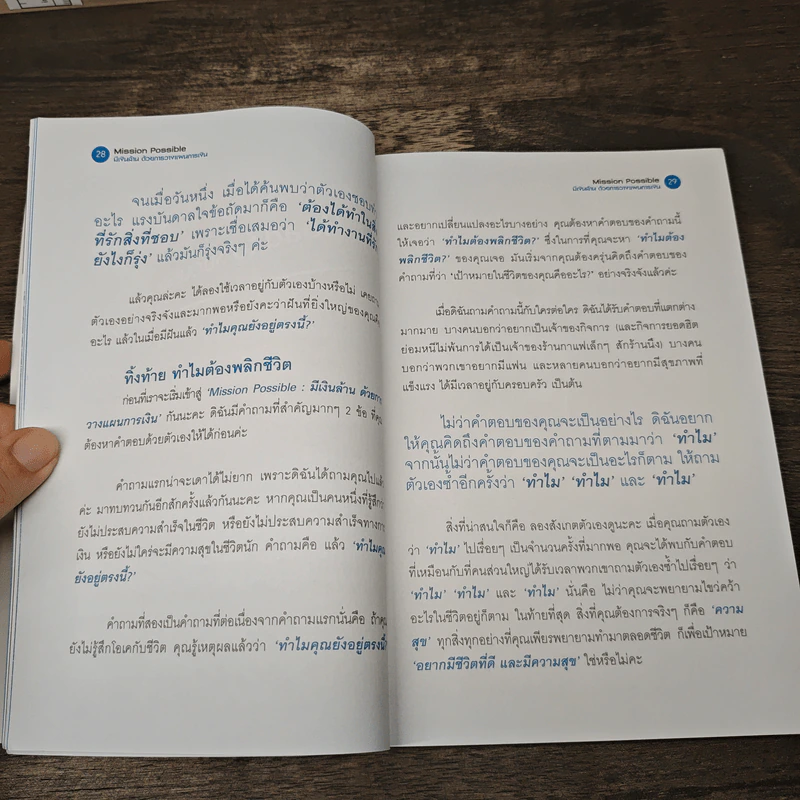 28 Mission Possible
มีเงินล้าน ด้วยการวางแผนการเงิน
จนเมื่อวันหนึ่ง เมื่อได้ค้นพบว่าตัวเองชอบทำ
อะไร แรงบันดาลใจข้อถัดมาก็คือ ‘ต้องได้ทำในสิ่ง
ที่รักสิ่งที่ชอบ’ เพราะเชื่อเสมอว่า ‘ได้ทำงานที่รัก
ยังไงก็รุ่ง’ แล้วมันก็รุ่งจริงๆ ค่ะ
แล้วคุณล่ะคะ ได้ลองใช้เวลาอยู่กับตัวเองบ้างหรือไม่ เคยถาม
ตัวเองอย่างจริงจังและมากพอหรือยังคะว่าฝันที่ยิ่งใหญ่ของคุณคือ
อะไร แล้วในเมื่อมีฝันแล้ว ‘ทำไมคุณยังอยู่ตรงนี้?’
ทิ้งท้าย ทำไมต้องพลิกชีวิต
ก่อนที่เราจะเริ่มเข้าสู่ ‘Mission Possible : มีเงินล้าน ด้วยการ
วางแผนการเงิน’ กันนะคะ ดิฉันมีคำถามที่สำคัญมากๆ 2 ข้อ ที่คุณ
ต้องหาคำตอบด้วยตัวเองให้ได้ก่อนค่ะ
คำถามแรกน่าจะเดาได้ไม่ยาก เพราะดิฉันได้ถามคุณไปแล้ว
ค่ะ มาทบทวนกันอีกสักครั้งแล้วกันนะคะ หากคุณเป็นคนหนึ่งที่รู้สึกว่า
ยังไม่ประสบความสำเร็จในชีวิต หรือยังไม่ประสบความสำเร็จทางการ
เงิน หรือยังไม่ใคร่จะมีความสุขในชีวิตนัก คำถามคือ แล้ว ‘ทำไมคุณ
ยังอยู่ตรงนี้?’
คำถามที่สองเป็นคำถามที่ต่อเนื่องจากคำถามแรกนั่นคือ ถ้าคุณ
ยังไม่รู้สึกโอเคกับชีวิต คุณรู้เหตุผลแล้วว่า ‘ทำไมคุณยังอยู่ตรงนี้’
Mission Possible 29
มีเงินล้าน ด้วยการวางแผนการเงิน
และอยากเปลี่ยนแปลงอะไรบางอย่าง คุณต้องหาคำตอบของคำถามนี้
ให้เจอว่า ‘ทำไมต้องพลิกชีวิต?’ ซึ่งในการที่คุณจะหา ‘ทำไมต้อง
พลิกชีวิต?’ ของคุณเจอ มันเริ่มจากคุณต้องครุ่นคิดถึงคำตอบของ
คำถามที่ว่า ‘เป้าหมายในชีวิตของคุณคืออะไร?’ อย่างจริงจังแล้วค่ะ
เมื่อดิฉันถามคำถามนี้กับใครต่อใคร ดิฉันได้รับคำตอบที่แตกต่าง
มากมาย บางคนบอกว่าอยากเป็นเจ้าของกิจการ (และกิจการยอดฮิต
ย่อมหนีไม่พ้นการได้เป็นเจ้าของร้านกาแฟเล็กๆ สักร้านนึง) บางคน
บอกว่าพวกเขาอยากมีแฟน และหลายคนบอกว่าอยากมีสุขภาพที่
แข็งแรง ได้มีเวลาอยู่กับครอบครัว เป็นต้น
ไม่ว่าคำตอบของคุณจะเป็นอย่างไร ดิฉันอยาก
ให้คุณคิดถึงคำตอบของคำถามที่ตามมาว่า ‘ทำไม’
จากนั้นไม่ว่าคำตอบของคุณจะเป็นอะไรก็ตาม ให้ถาม
ตัวเองซ้ำอีกครั้งว่า ‘ทำไม’ ‘ทำไม’ และ ‘ทำไม’
สิ่งที่น่าสนใจก็คือ ลองสังเกตตัวเองดูนะคะ เมื่อคุณถามตัวเอง
ว่า ‘ทำไม’ ไปเรื่อยๆ เป็นจำนวนครั้งที่มากพอ คุณจะได้พบกับคำตอบ
ที่เหมือนกับที่คนส่วนใหญ่ได้รับเวลาพวกเขาถามตัวเองซ้ำไปเรื่อยๆ ว่า
‘ทำไม’ ‘ทำไม’ และ ‘ทำไม’ นั่นคือ ไม่ว่าคุณจะพยายามไขว่คว้า
อะไรในชีวิตอยู่ก็ตาม ในท้ายที่สุด สิ่งที่คุณต้องการจริงๆ ก็คือ ‘ความ
สุข’ ทุกสิ่งทุกอย่างที่คุณเพียรพยายามทำมาตลอดชีวิต ก็เพื่อเป้าหมาย
‘อยากมีชีวิตที่ดี และมีความสุข’ ใช่หรือไม่คะ